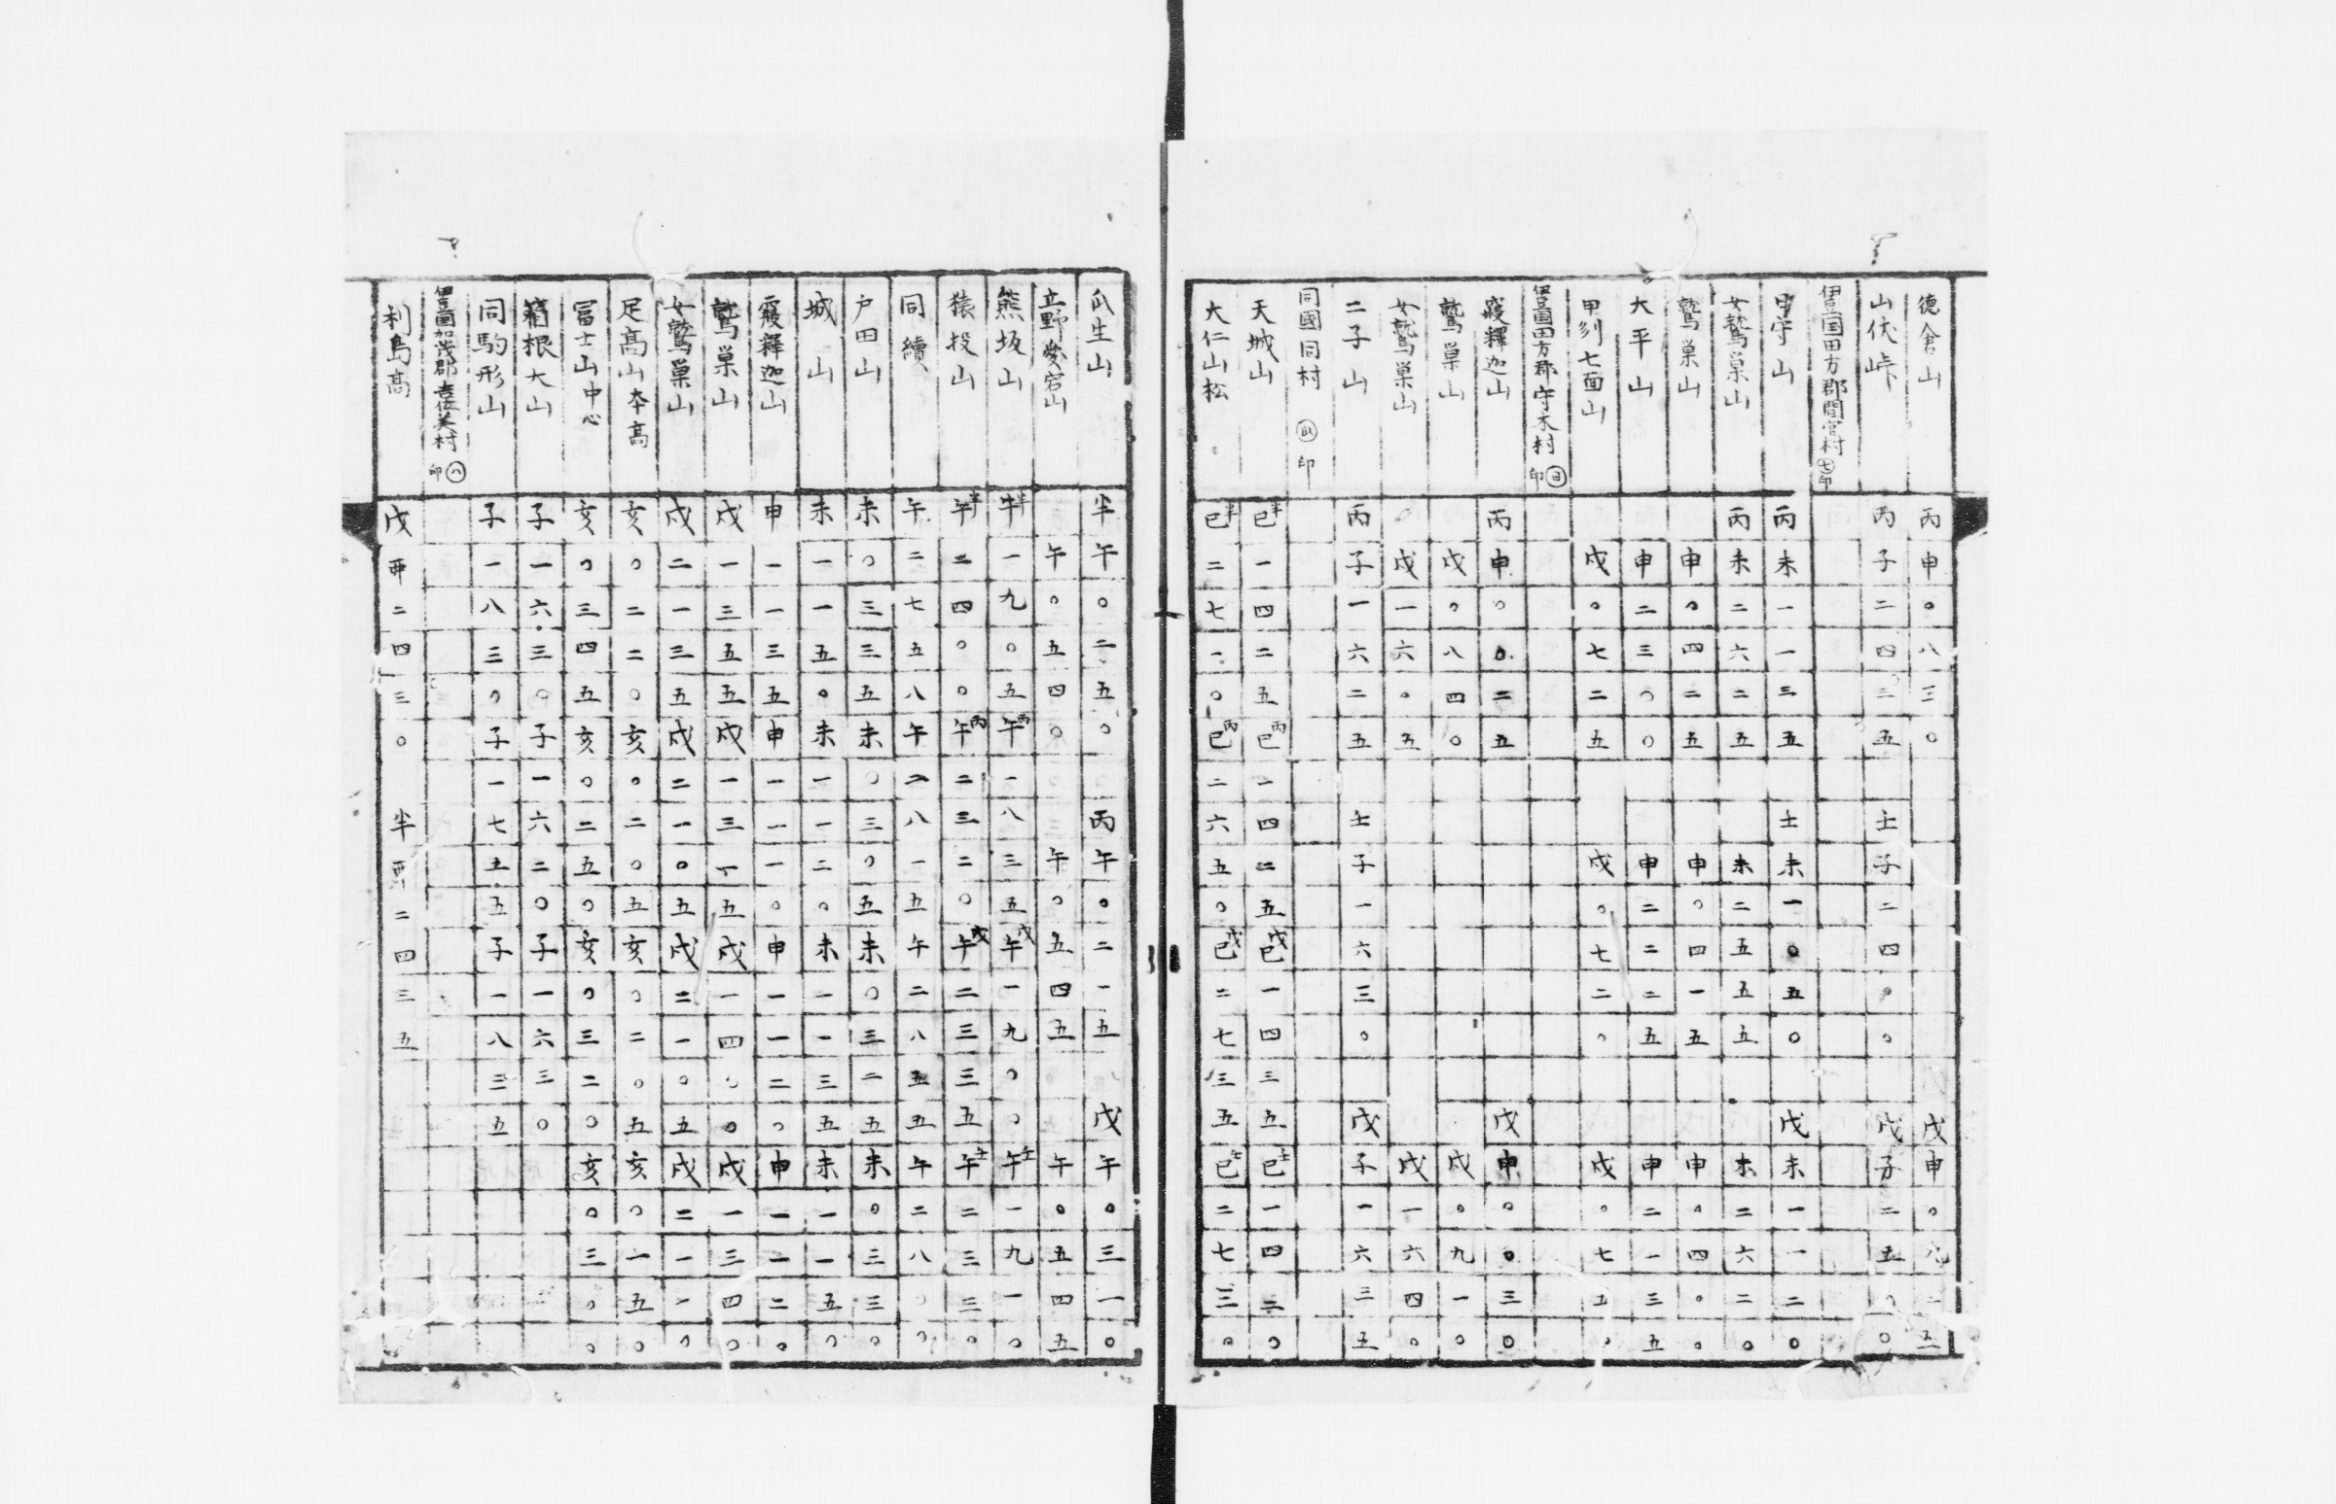 德倉山 丙申〇八三〇 戊申〇八二五
山伏峠 丙子二四三五 士子二四〇〇 戊子二五〇〇
伊豆国田方郡間宮村 七印
守山 丙未一一三五 士未一〇五〇 戊未一一二〇
女鷲巣山 丙未二六二五 未二五五五 未二六二〇
鷲巣山 申〇四二五 申〇四一五 申〇四〇〇
大平山 申二三〇〇 申二二二五 申二一三五
甲刕七面山 戌〇七二五 戌〇七二〇 戌〇七五〇
伊豆國田方郡守木村 ヨ印
寢釋迦山 丙申〇〇二五 戊申〇〇三〇
鷲巣山 戌〇八四〇 戌〇九一〇
女鷲巣山 戌一六〇五 戌一六四〇
二子山 丙子一六二五 士子一六三〇 戊子一六三五
同國同村 印
天城山 半巳一四二五 丙巳一四二五 戊巳一四三五 士巳一四二〇
大仁山松 半巳二七一〇 丙巳二六五〇 戊巳二七三五 士巳二七三〇
瓜生山 半午〇二五〇 丙午〇二一五 戊午〇三一〇
立野愛宕山 午〇五四〇 午〇五四五 午〇五四五
熊坂山 半午一九〇五 丙午一八三五 戊午一九〇〇 士午一九一〇
猿投山 半午二四〇〇 丙午二三二〇 戊午二三三五 士午二三三〇
同續 午二七五八 午二八一五 午二八五五 午二八〇〇
戸田山 未〇三三五 未〇三〇五 未〇三二五 未〇三三〇
城山 未一一五〇 未一一二〇 未一一三五 未一一五〇
寢釋迦山 申一一三五 申一一一〇 申一一二〇 申一一二〇
鷲巣山 戌一三五五 戌一三一五 戌一四〇〇 戌一三四〇
女鷲巣山 戌二一三五 戌二一〇五 戌二一〇五 戌二一一〇
足高山 本高 亥〇二二〇 亥〇二〇五 亥〇二〇五 亥〇一五〇
冨士山中心 亥〇三四五 亥〇二五〇 亥〇三二〇 亥〇三〇〇
箱根大山 子一六三〇 子一六二〇 子一六三〇
同駒形山 子一八三〇 子一七五五 子一八三五
伊豆國加茂郡吉佐美村 八印
利島高 戊 二四三〇 半 二四三五